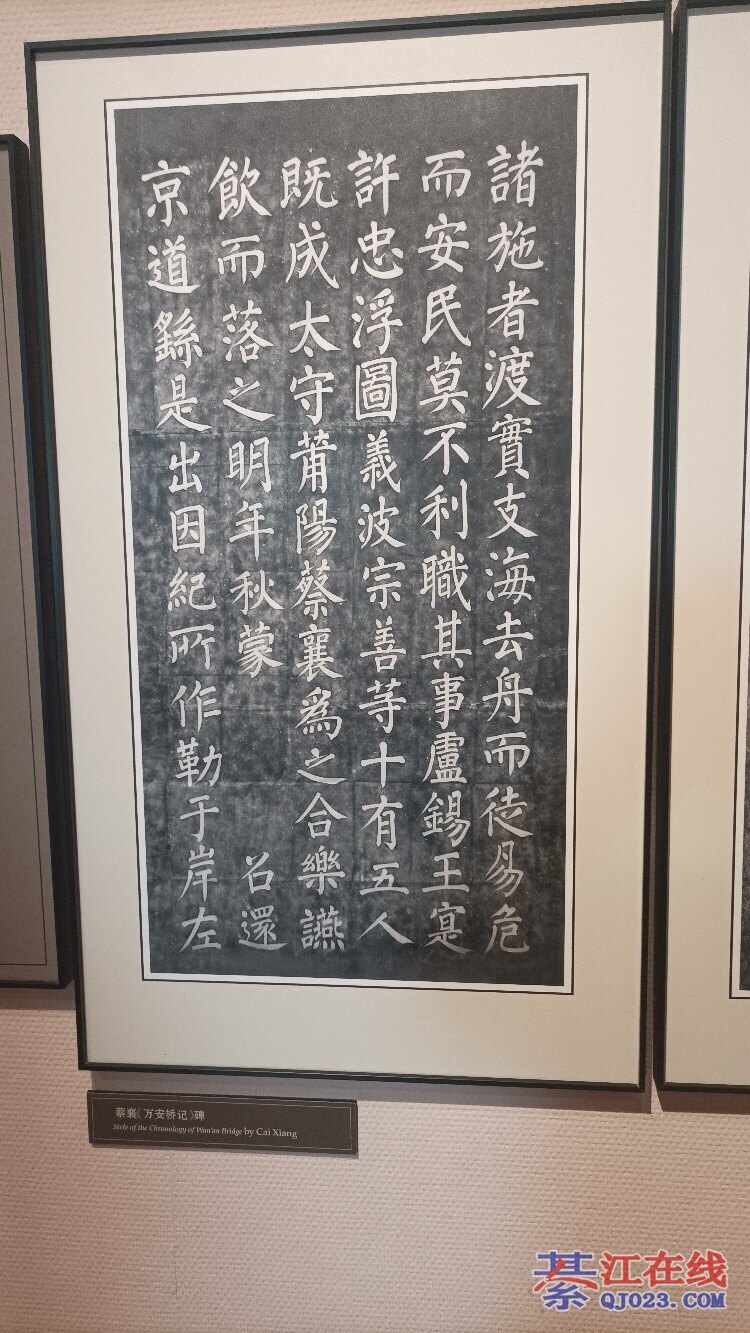 諸施者渡實支海去舟而徒易危
而安民莫不利職其事盧錫王寔
許忠浮圖義波宗善等十有五人
既成太守莆陽蔡襄爲之合樂讌
飲而落之明年秋蒙 召還
京道繇是出因紀所作勒于岸左
蔡襄《万安桥记》碑
Stele of the Chronology of Wan'an Bridge by Cai Xiang
綦江在线
QJ023.COM